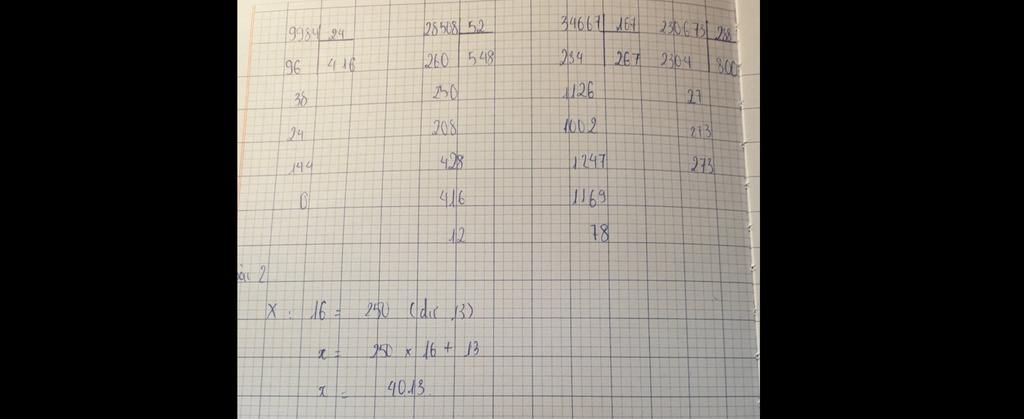 9984 24 28508 52 34667 167 230673 288
96 416 260 548 234 267 2304 800
38 250 1126 27
24 208 1002 273
144 428 1247 273
0 416 1169
12 78
bài 2
X : 16 = 250 (dư 13)
x = 250 × 16 + 13
x = 4013